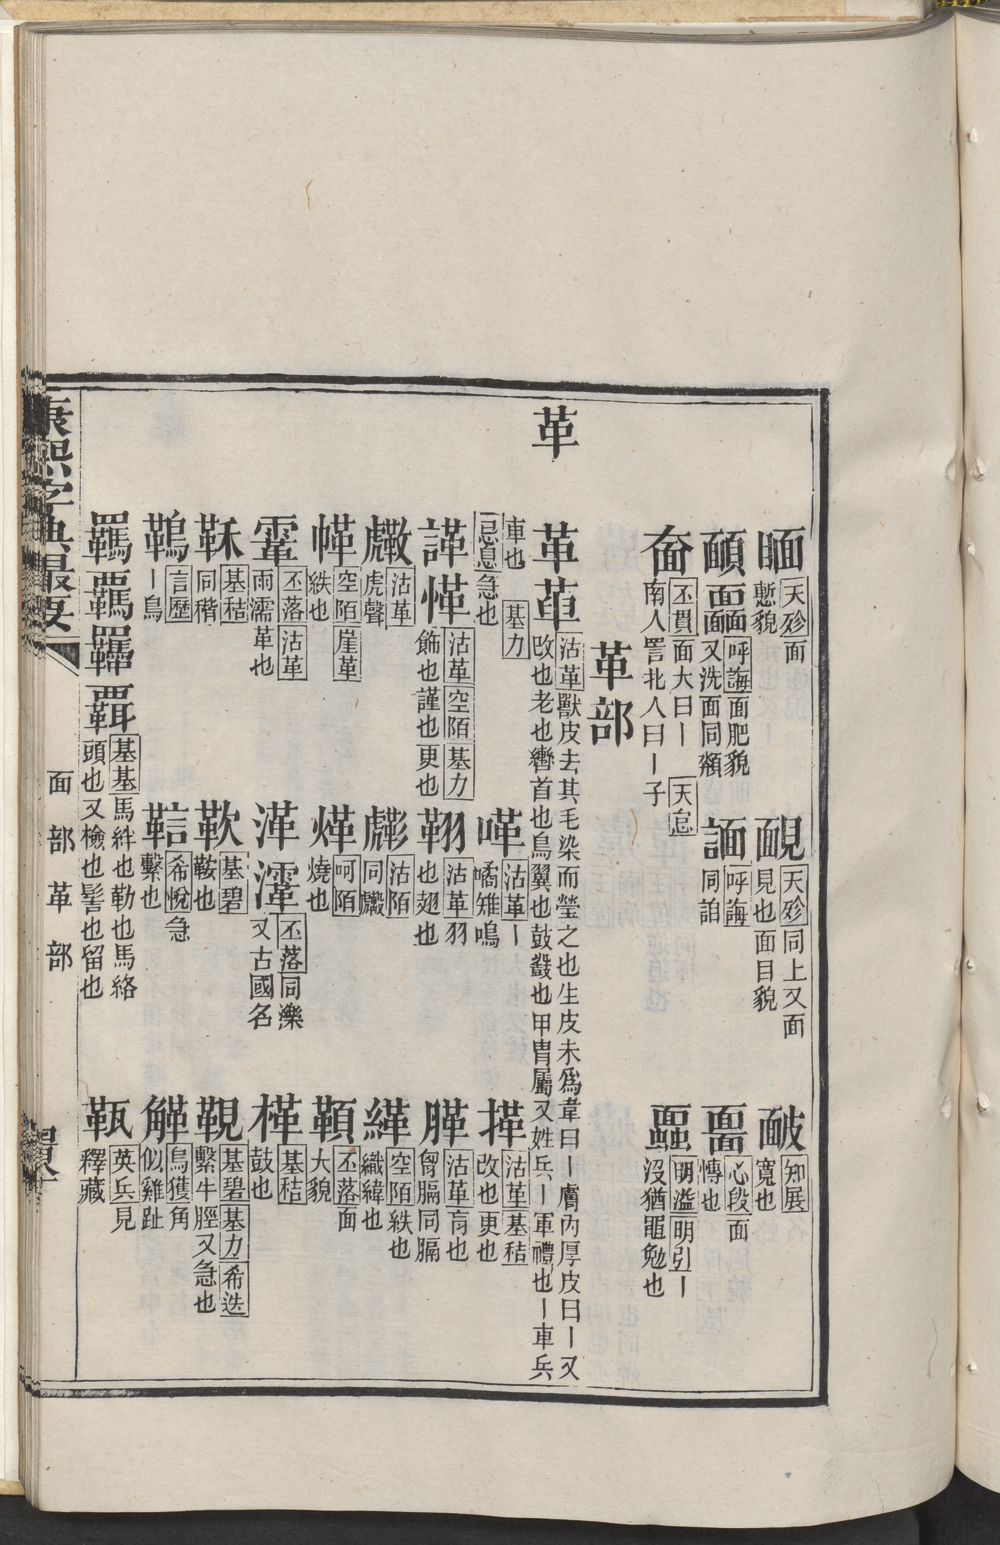 䩄 天殄 面慙貌
靦 天殄 同上又面見也面目貌
知展 寬也
呼誨 面肥貌又洗面同頮
呼誨 同詯
心段 面慱也
奤 丕貫 面大曰丨南人詈北人曰丨子 天宼
明溢 明引 丨沒猶黽勉也
革部
革
革 沽革 獸皮去其毛染而瑩之也生皮未爲韋曰丨膚內厚皮曰丨又改也老也轡首也鳥翼也鼓鼗也甲冑屬又姓兵丨軍禮也丨車兵車也 基力 忌息 急也
嗶 沽革 丨嗝雉鳴
㨴 沽革 基秸 改也更也
諽 愅 沽革 空陌 基力 飾也謹也更也
翶 沽革 羽也翅也
膈 沽革 肓也胷膈同膈
沽革 虎聲
沽陌 同虩
緙 空陌 紩也織緯也
空陌 崖革 紩也
呵陌 燒也
丕落 面大貌
䨣 丕落 沽革 雨濡革也
丕落 同濼又古國名
基秸 鼓也
基秸 同稭
基碧 鞍也
基碧 基力 希迭 繫牛脛又急也
言歷 丨鳥
希悅 急繫也
烏獲 角似雞趾
羈 基基 馬絆也勒也馬絡頭也又檢也髻也留也
英兵 見釋藏
康熙字典最要
面部革部